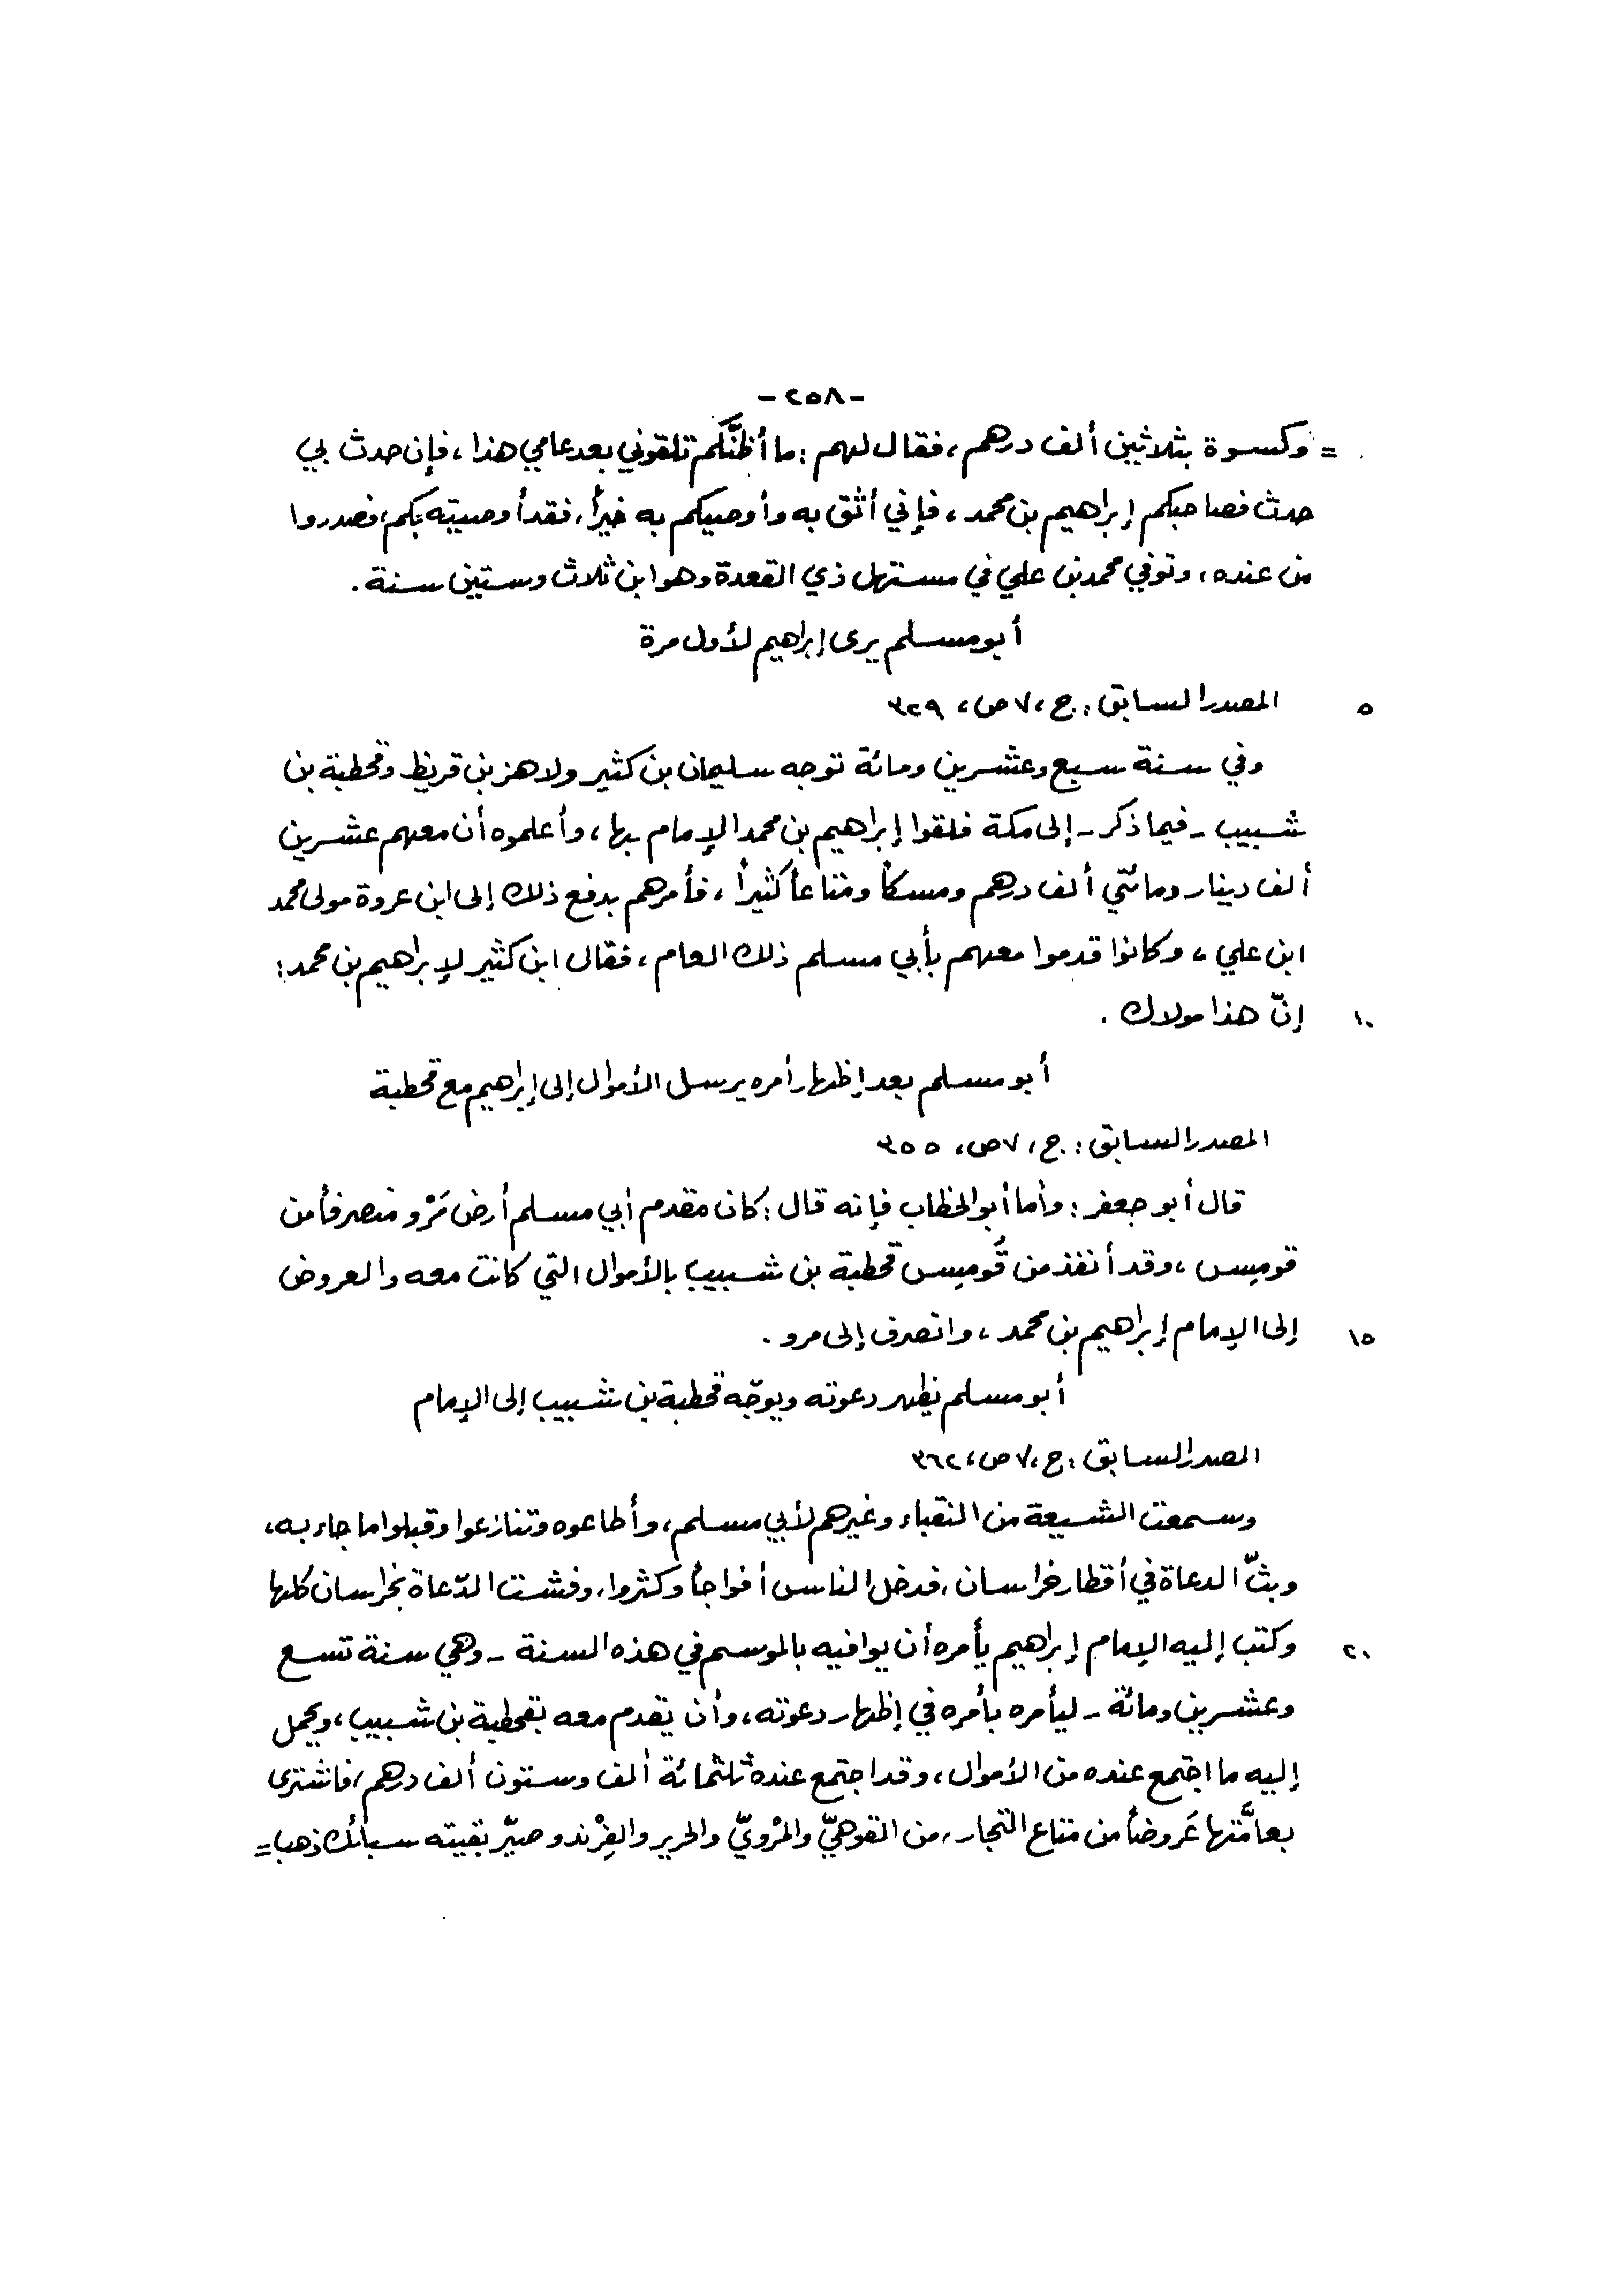 -٢٥٨-
= وكسوة بثلاثين ألف درهم، فقال لهم : ما أظنَّكم تلقوني بعد عامي هذا، فإن حدث بي
حدث فصاحبكم إبراهيم بن محمد، فإني أثق به وأوصيكم به خيراً، فقد أوصيته بكم، فصدروا
من عنده، وتوفي محمد بن علي في مستهل ذي القعدة وهو ابن ثلاث وستين سنة .
أبو مسلم يرى إبراهيم لأول مرة
٥ المصدر السابق : ج، ٧ ص، ٣٢٩
وفي سنة سبع وعشرين ومائة توجه سليمان بن كثير ولاهز بن قريظ وقحطبة بن
شبيب - فيما ذكر - إلى مكة فلقوا إبراهيم بن محمد الإمام بها، وأعلموه أن معهم عشرين
ألف دينار ومائتي ألف درهم ومسكاً ومتاعاً كثيراً، فأمرهم بدفع ذلك إلى ابن عروة مولى محمد
ابن علي، وكانوا قدموا معهم بأبي مسلم ذلك العام، فقال ابن كثير لإبراهيم بن محمد :
١٠ إنّ هذا مولاك .
أبو مسلم بعد إظهار أمره يرسل الأموال إلى إبراهيم مع قحطبة
المصدر السابق : ج، ٧ ص، ٣٥٥
قال أبو جعفر : وأما أبو الخطاب فإنه قال : كان مقدم أبي مسلم أرض مَرْو منصرفاً من
قوميس، وقد أنفذ من قُوميس قحطبة بن شبيب بالأموال التي كانت معه والعروض
١٥ إلى الإمام إبراهيم بن محمد، وانصرف إلى مرو .
أبو مسلم يظهر دعوته ويوجّه قحطبة بن شبيب إلى الإمام
المصدر السابق : ج، ٧ ص، ٣٦٢
وسمعت الشيعة من النقباء وغيرهم لأبي مسلم، وأطاعوه وتنازعوا وقبلوا ما جاء به،
وبثّ الدعاة في أقطار خراسان، فدخل الناس أفواجاً وكثروا، وفشت الدّعاة بخراسان كلها
٢٠ وكتب إليه الإمام إبراهيم يأمره أن يوافيه بالموسم في هذه السنة - وهي سنة تسع
وعشرين ومائة - ليأمره بأمره في إظهار دعوته، وأن يقدم معه بقحطبة بن شبيب، ويحمل
إليه ما اجتمع عنده من الأموال، وقد اجتمع عنده ثلثمائة ألف وستون ألف درهم، فاشترى
بعامَّتها عَروضاً من متاع التجار، من القوهيّ والمرْويّ والحرير والفِرْند وصيّر بقيته سبائك ذهب =